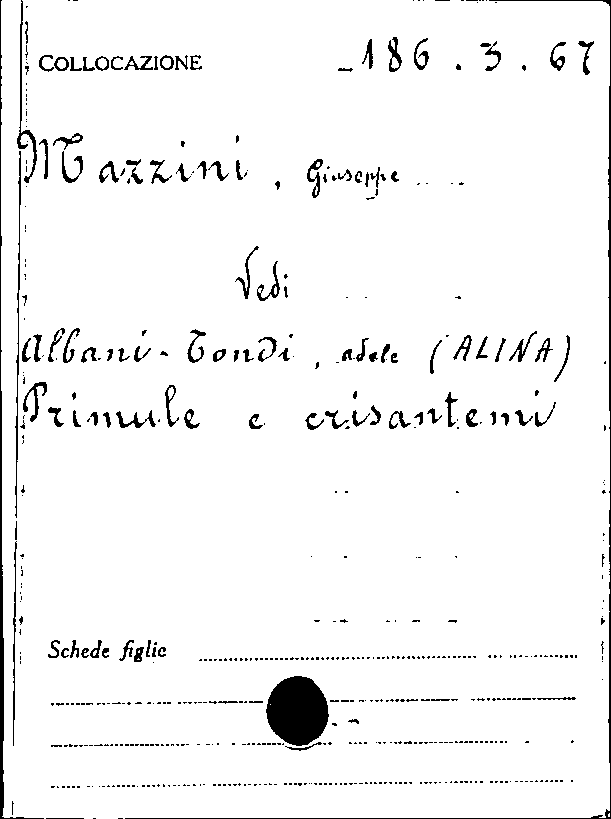 COLLOCAZIONE 186.3.67
Mazzini, Giuseppe
Vedi
Albani-Tondi, Adele (ALINA)
Primule e crisantemi
Schede figlie